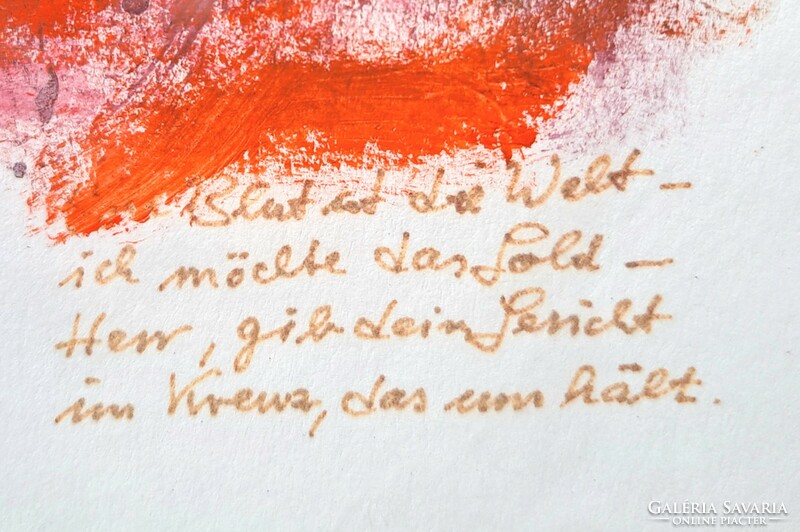 Im Blut ist die Welt –
ich möchte das Gold –
Herr, gib dein Gericht
im Kreuz, das uns hält.
GALÉRIA SAVARIA
ONLINE PIACTÉR